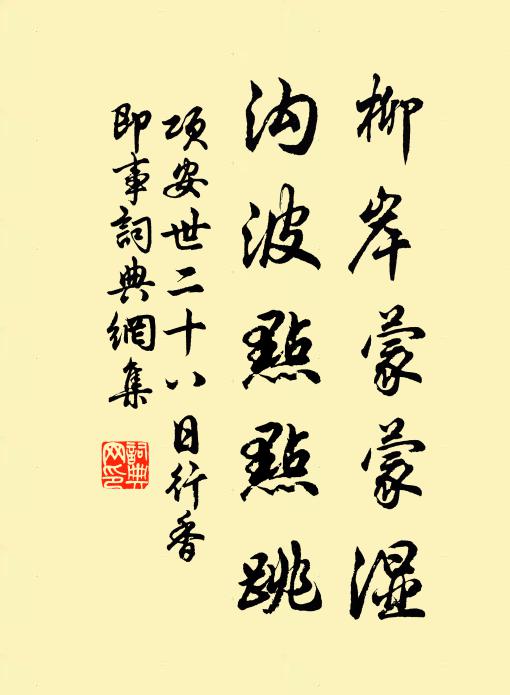 柳岸蒙蒙湿
沟波點點跳
项安世二十八日行香
即事詞典網集
詞典
网印